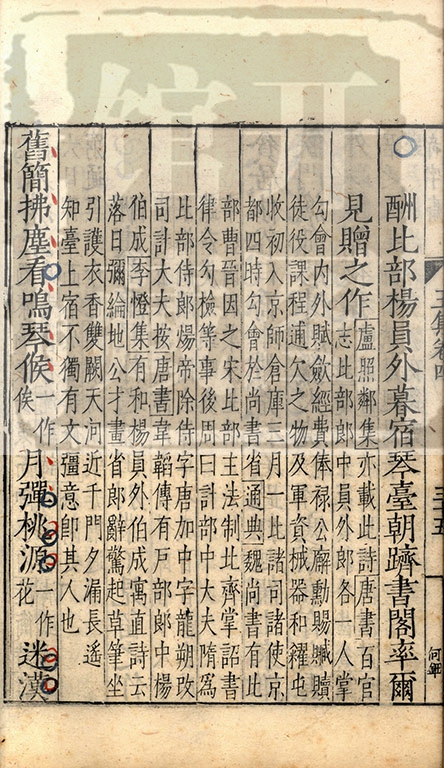 酬比部楊員外暮宿琴臺朝躋書閣率爾
見贈之作
盧照鄰集亦載此詩唐書百官
志比部郎中員外郎各一人掌
勾會内外賦斂經費俸祿公廨勳賜贓贖
徒役課程逋欠之物及軍資械器和糴屯
收初入京師倉庫三月一比諸司諸使京
都四時勾會於尚書省通典魏尚書有此
部曹晉因之宋比部主法制北齊掌詔書
律令勾檢等事後周曰計部中大夫隋爲
比部侍郎煬帝除侍字唐加中字龍朔改
司計大夫按唐書韋韜傳有戸部郎中楊
伯成李憕集有和楊員外伯成寓直詩云
落日彌綸地公才畫省郎辭驚起草筆坐
引護衣香雙闕天河近千門夕漏長遙
知臺上宿不獨有文彊意卽其人也
舊簡拂塵看鳴琴俟一作
俟月彈桃源一作
花迷漢
三五
何